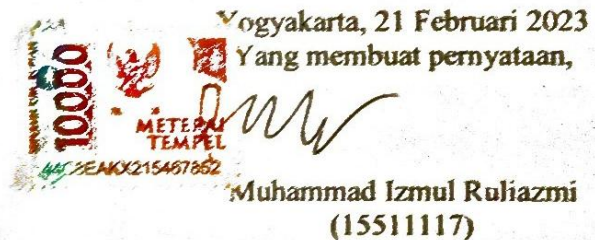 Yogyakarta, 21 Februari 2023
Yang membuat pernyataan,
10000
METERAI
TEMPEL
EAKX215467862
Muhammad Izmul Ruliazmi
(15511117)